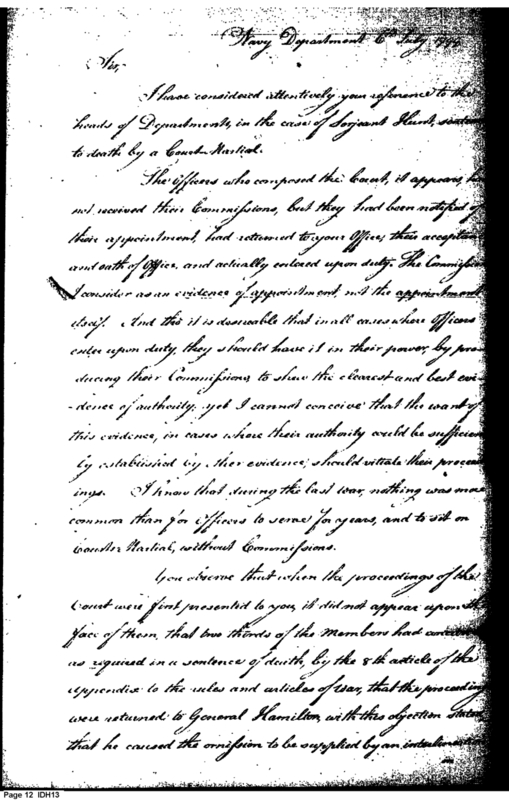 Navy Department 6th July
Sir,
I have considered attentively your reference to the
heads of Departments, in the case of Serjeant Hunt,
to death by a Court Martial.
The Officers who composed the Court, it appears,
not received their Commissions, but they had been notified of
their appointment, had returned to your Office, their
and oath of Office, and actually entered upon duty. The
I consider as an evidence of appointment, not the appointment
itself. And tho it is desireable that in all cases where Officers
enter upon duty, they should have it in their power, by pro-
ducing their Commissions, to shew the clearest and best evi-
-dence of authority; yet I cannot conceive that the want of
this evidence, in cases where their authority could be
ly established by other evidence, should vitiate their
ings. I know that during the last war, nothing was more
common than for Officers to serve for years, and to sit on
Courts Martial, without Commissions.
You observe that when the proceedings of the
Court were first presented to you, it did not appear upon the
face of them, that two thirds of the Members had
as required in a sentence of death, by the 8th article of the
appendix to the rules and articles of War, that the
were returned to General Hamilton, with this objection
that he caused the omission to be supplied by an
Page 12 IDH13